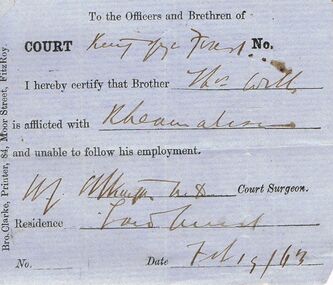 To the Officers and Brethren of
COURT Forest No.
I hereby certify that Brother Thos
is afflicted with Rheumatism
and unable to follow his employment.
Court Surgeon.
Residence
No. Date Feb 19/63
Bro. Clarke, Printer, 84, Moor Street, FitzRoy.